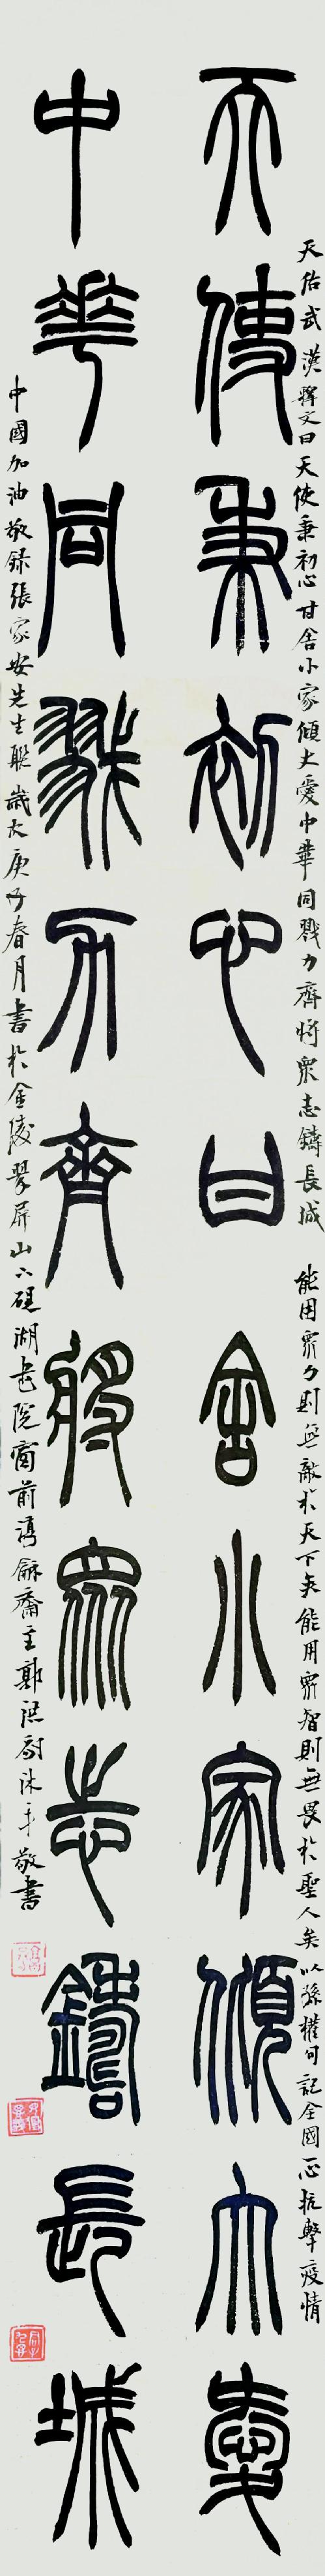 天佑武漢釋文曰天使秉初心甘舍小家傾大愛中華同戮力齊將眾志鑄長城 能用眾力則無敵於天下矣能用眾智則無畏於聖人矣以孫權句記全國正抗擊疫情
天使秉初心甘舍小家傾大愛
中華同戮力齊將眾志鑄長城
中國加油敬錄張家安先生聯歲大庚子春月書於金陵翠屏山下硯湖書院窗前濤龢齋主郭洪尉沐手敬書